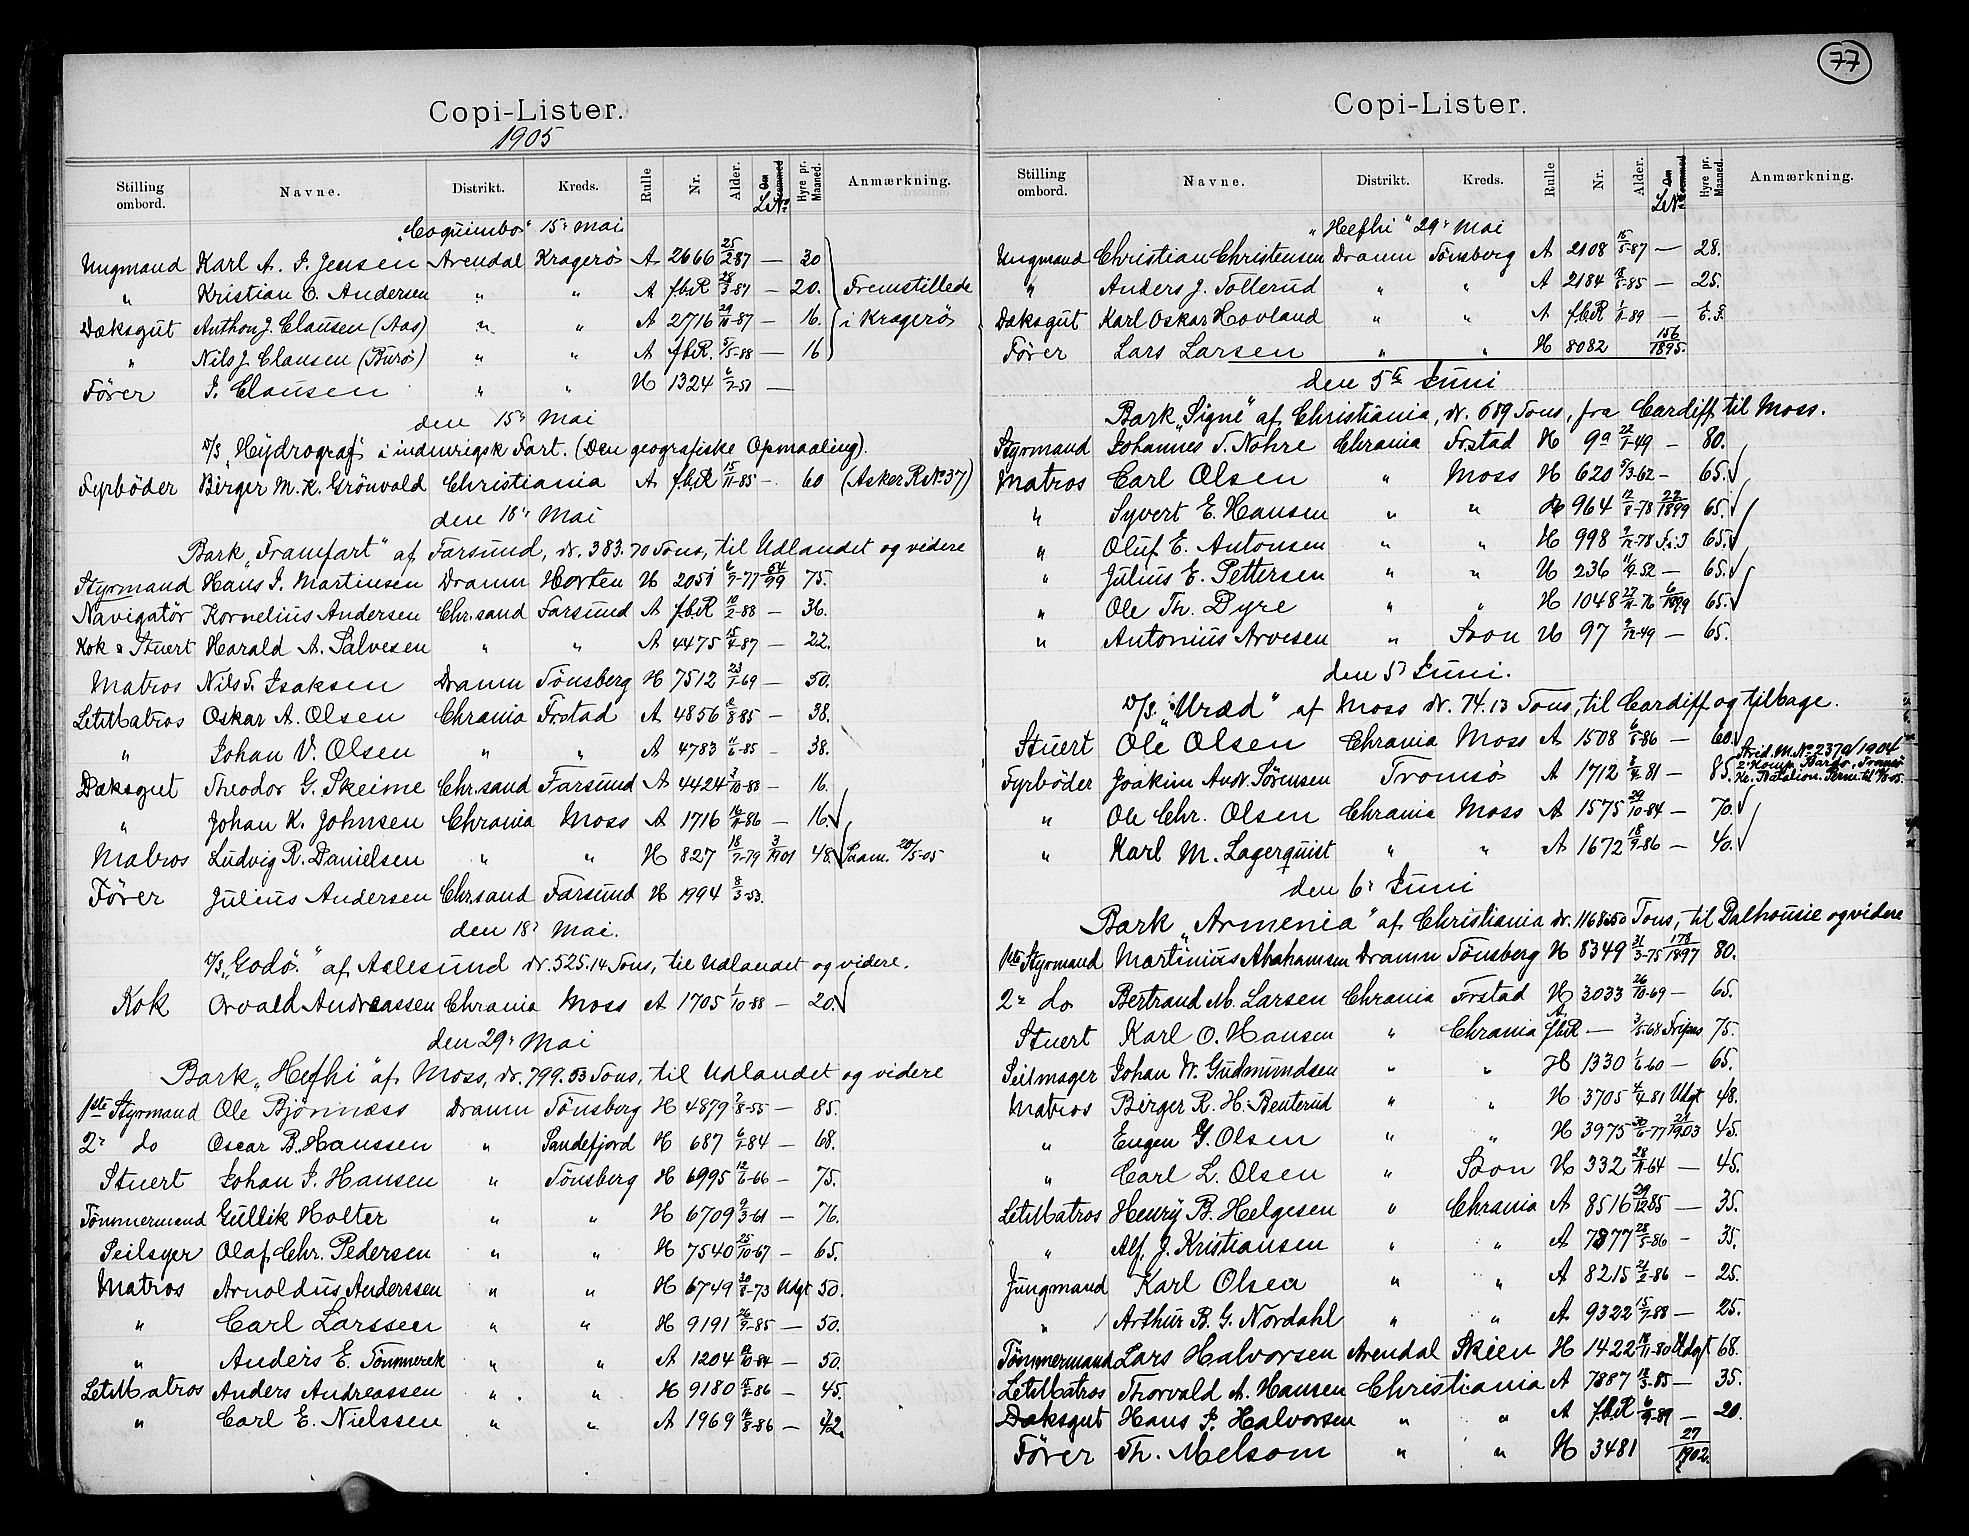 77
Copi-Lister.
1905
Stilling ombord. Navne. Distrikt. Kreds. Rulle Nr. Alder. Om Kommd LNo Hyre pr. Maaned. Anmærkning.
"Coquimbo" 15' Mai
Ungmand Karl A. J. Jensen Arendal Kragerö A 2666 25/2-87 — 30
" Kristian O. Andersen " " A f.b.R 28/3-87 — 20. Fremstillede
Dæksgut Anthon J. Clausen (Aas) " " A 2716 29/10-87 — 16. i Kragerö
" Nils J. Clausen (Burö) " " A f.b.R. 5/5-88 — 16
Förer J. Clausen " " H 1324 6/7-51 —
den 15' Mai
D/S "Hydrograf" i indenrigsk Fart. (Den geografiske Opmaaling).
Fyrböder Birger M. K. Grönvold Christiania A f.b.R 15/11-85 — 60 (Asker R No 37)
den 18' Mai
Bark "Framfart" af Farsund, dr. 383.70 Tons, til Udlandet og videre
Styrmand Hans J. Martinsen Dramn Horten H 2051 6/7-77 54/99 75.
Navigatør Kornelius Andersen Chr.sand Farsund A f.b.R 10/2-88 — 36.
Kok & Stuert Harald A. Salvesen " " A 4475 15/4-87 — 22.
Matros Nils T. Isaksen Dramn Tönsberg H 7512 23/1-69 — 50.
LetMatros Oskar A. Olsen Chrania Frstad A 4856 /8-85 — 38.
" Johan V. Olsen " " A 4783 11/6-85 — 38.
Dæksgut Theodor G. Skeime Chr.sand Farsund A 4424 3/10-83 — 16.
" Johan K. Johnsen Chrania Moss A 1716 16/11-86 — 16.
Matros Ludvig R. Danielsen " " H 827 18/7-79 3/1901 48. Sram. 20/5-05
Förer Julius Andersen Chr.sand Farsund H 1994 8/3-53.
den 18' Mai.
D/S "Godö." af Aalesund dr. 525.14 Tons, til Udlandet og videre.
Kok Orvald Andreassen Chrania Moss A 1705 1/10-88 — 20.
den 29' Mai
Bark "Hefhi" af Moss, dr. 799.53 Tons, til Udlandet og videre
1ste Styrmand Ole Bjönnæss Dramn Tönsberg H 4879 7/8-55 — 85.
2' do Oscar B. Hanssen " Sandefjord H 687 6/1-84 — 68.
Stuert Johan J. Hansen " Tönsberg H 6995 12/6-66 — 75.
Tömmermand Gullik Holter " " H 6709 9/3-61 — 76.
Seilsyer Olaf Chr. Pedersen " " H 7540 25/10-67 — 65.
Matros Arnoldus Anderssen " " H 6749 20/8-73 Udgt 50.
" Carl Larssen " " H 9191 26/9-85 — 50.
" Anders E. Tömmerek " " A 1204 /10-84 — 50.
LetMatros Anders Andreassen " " H 9180 /-86 — 45.
" Carl E. Nielssen " " A 1969 16/8-86 — 42.
Copi-Lister.
Stilling ombord. Navne. Distrikt. Kreds. Rulle Nr. Alder. Om Kommd LNo Hyre pr. Maaned. Anmærkning.
"Hefhi" 29' Mai
Ungmand Christian Christensen Dramn Tönsberg A 2108 15/5-87 — 28.
" Anders J. Tollerud " " A 2184 /-85 — 25.
Dæksgut Karl Oskar Hovland " " A f.b.R /-89 — E. F.
Förer Lars Larsen " " H 8082 156/1895.
den 5te Juni
Bark "Signe" af Christiania, dr. 689 Tons, fra Cardiff til Moss.
Styrmand Johannes T. Nohre Chrania Frstad H 9a 22/1-49 — 80.
Matros Carl Olsen " Moss H 620 5/3-62 — 65.
" Syvert E. Hansen " " H 964 12/8-78 22/1899 65.
" Oluf E. Antonsen " " H 998 2/12-78 65.
" Julius E. Pettersen " " H 236 11/9-52 — 65.
" Ole Th. Dyre " " H 1048 27/11-76 6/1899 65.
" Antonius Arvesen " Soon H 97 9/12-49 — 65.
den 5' Juni.
D/S. "Uræd" af Moss dr. 74.13 Tons, til Cardiff og tilbage.
Stuert Ole Olsen Chrania Moss A 1508 6/5-86 — 60.
Strid.M.No 237a/1904
Fyrböder Joakim Andr. Sörensen Tromsö A 1712 8/4-81 — 85. 2' Komp.
" Ole Chr. Olsen Chrania Moss A 1575 29/10-84 — 70.
" Karl M. Lagerquist " " A 1672 18/9-86 — 40.
den 6' Juni
Bark "Armenia" af Christiania dr. 1168.50 Tons, til Dalhousie og videre
1ste Styrmand Martinius Abrahamsen Dramn Tönsberg H 8349 31/3-75 178/1897 80.
2' do Bertrand M. Larsen Chrania Frstad H 3033 26/10-69 — 65.
Stuert Karl O. Hansen " Chrania A f.b.R — 3/5-68 Fripas 75.
Seilmager Johan W. Gudmundsen " " H 1330 1/6-60 — 65.
Matros Birger R. H. Benterud " " H 3705 4/4-81 Udgt 48.
" Eugen G. Olsen " " H 3975 30/6-77 21/1903 45.
" Carl L. Olsen " Soon H 332 28/11-64 — 45.
LetMatros Henry B. Helgesen " Chrania A 8516 29/12-85 — 35.
" Alf. J. Kristiansen " " A 7877 28/5-86 — 35.
Jungmand Karl Olsen " " A 8215 21/2-86 — 25.
" Arthur B. G. Nordahl " " A 9322 15/7-88 — 25.
Tömmermand Lars Halvorsen Arendal Skien H 1422 14/11-80 Udgt 68.
LetMatros Thorvald A. Hansen Christiania A 7887 12/3-85 — 35.
Dæksgut Hans J. Halvorsen " " A f.b.R 6/9-89 — 20.
Förer Th. Melsom " " H 3481 27/1902.